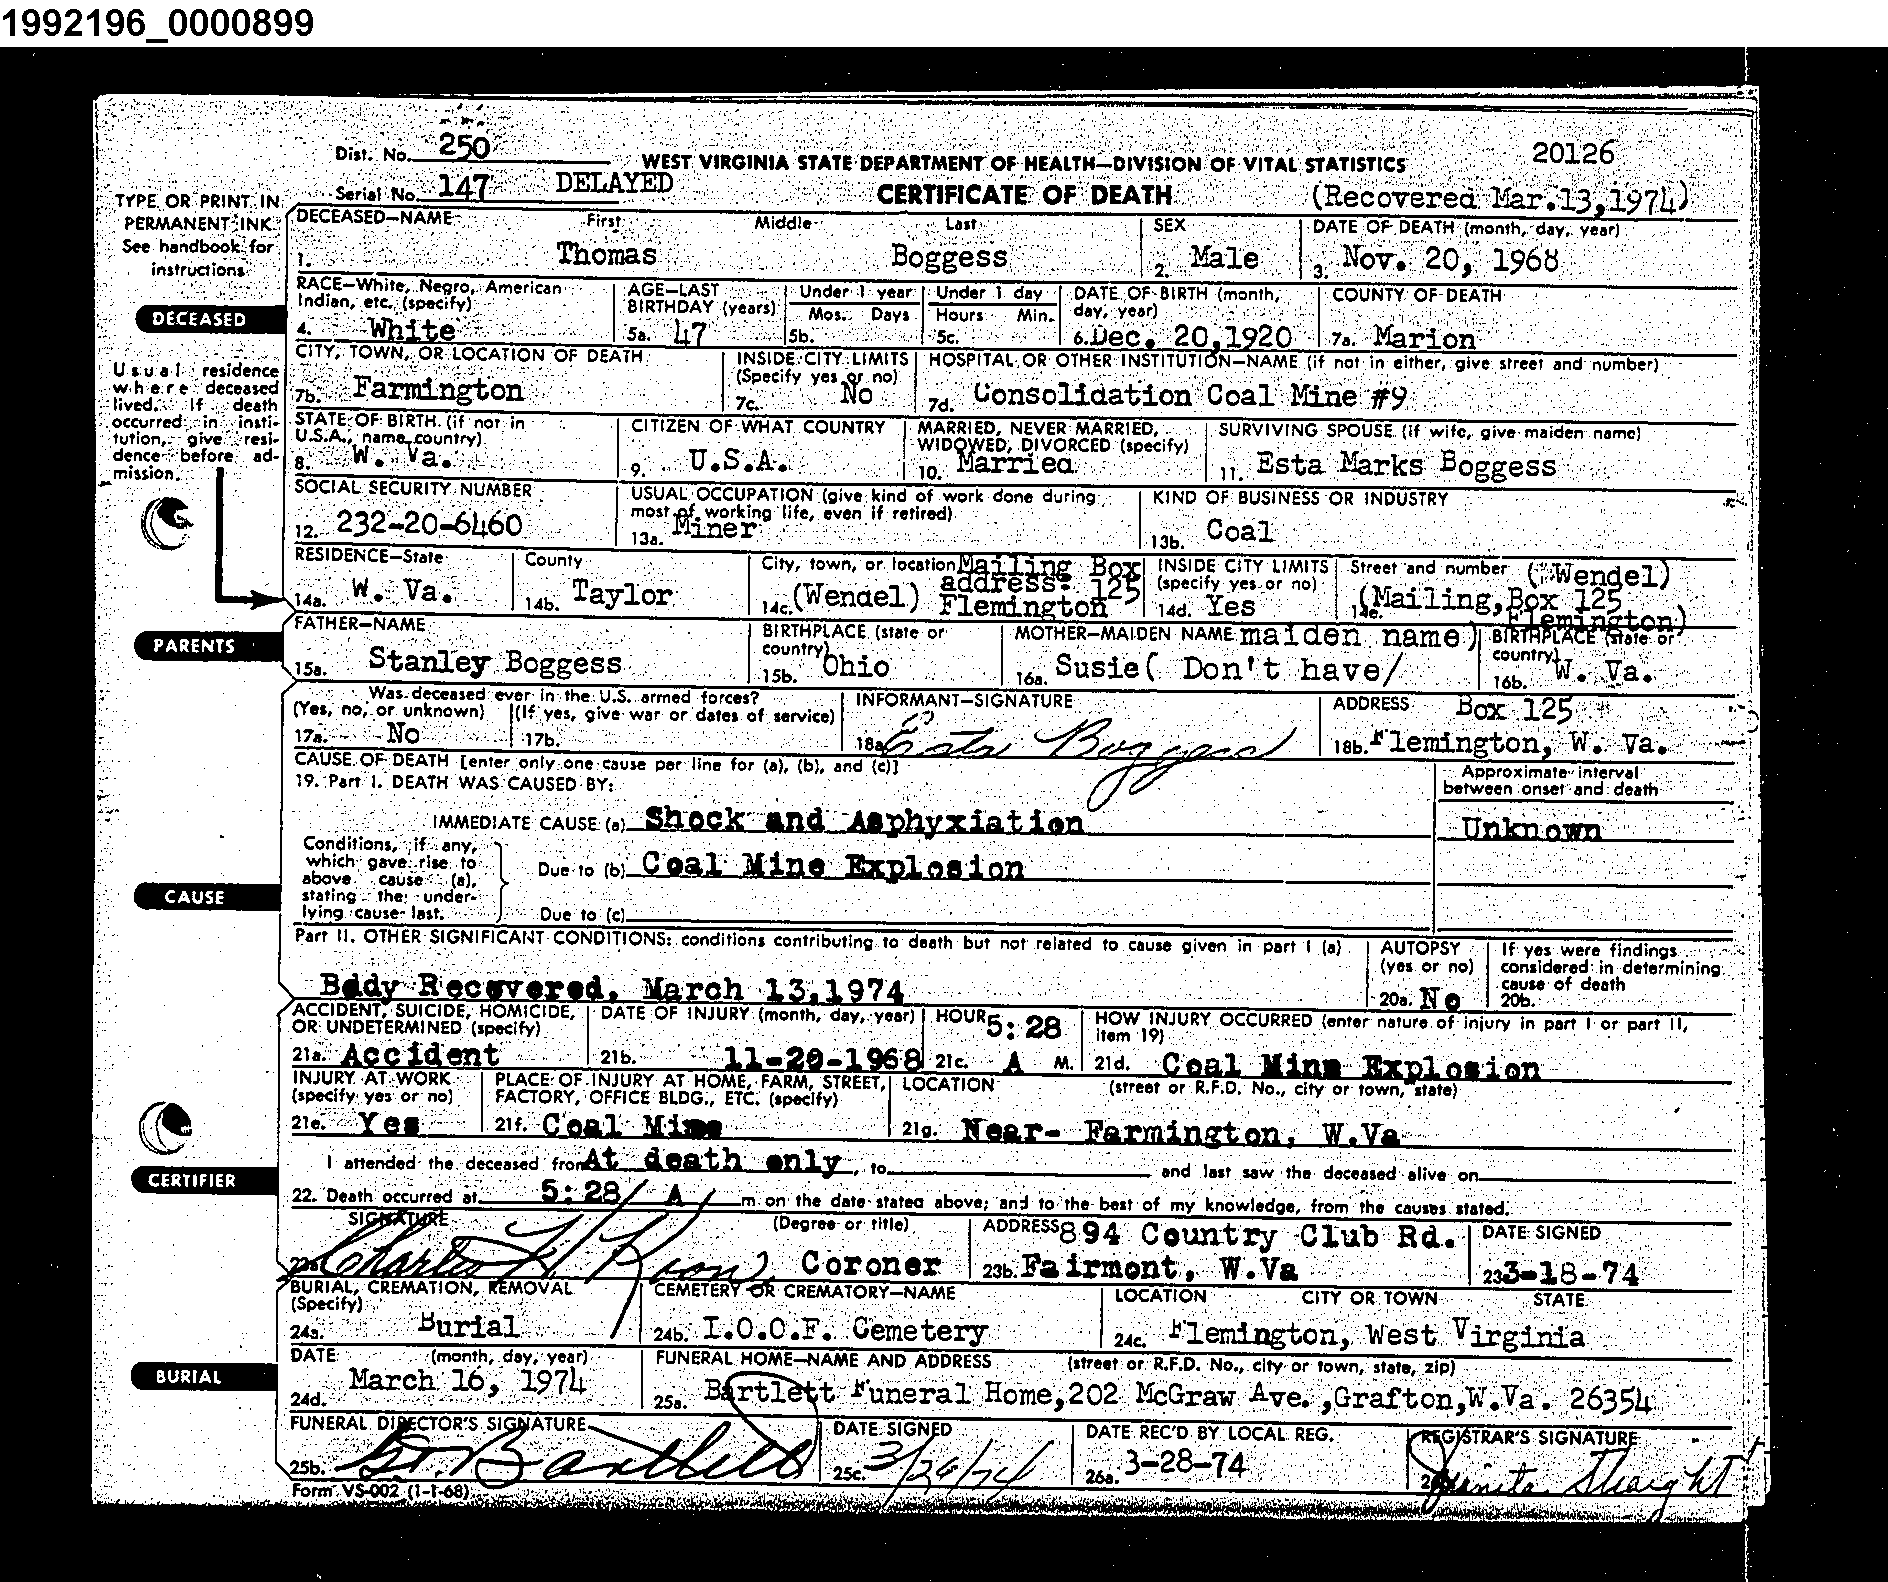 1992196_0000899
Dist. No. 250
WEST VIRGINIA STATE DEPARTMENT OF HEALTH—DIVISION OF VITAL STATISTICS
20126
Serial No. 147 DELAYED
CERTIFICATE OF DEATH
(Recovered Mar.13,1974)
TYPE OR PRINT IN
PERMANENT INK
See handbook for
instructions
DECEASED
Usual residence
where deceased
lived. If death
occurred in insti-
tution, give resi-
dence before ad-
mission.
DECEASED—NAME First Middle Last
1. Thomas Boggess
SEX
2. Male
DATE OF DEATH (month, day, year)
3. Nov. 20, 1968
RACE—White, Negro, American
Indian, etc. (specify)
4. White
AGE—LAST
BIRTHDAY (years)
5a. 47
Under 1 year
Mos. Days
5b.
Under 1 day
Hours Min.
5c.
DATE OF BIRTH (month,
day, year)
6. Dec. 20,1920
COUNTY OF DEATH
7a. Marion
CITY, TOWN, OR LOCATION OF DEATH
7b. Farmington
INSIDE CITY LIMITS
(Specify yes or no)
7c. No
HOSPITAL OR OTHER INSTITUTION—NAME (if not in either, give street and number)
7d. Consolidation Coal Mine #9
STATE OF BIRTH (if not in
U.S.A., name country)
8. W. Va.
CITIZEN OF WHAT COUNTRY
9. U.S.A.
MARRIED, NEVER MARRIED,
WIDOWED, DIVORCED (specify)
10. Married
SURVIVING SPOUSE (if wife, give maiden name)
11. Esta Marks Boggess
SOCIAL SECURITY NUMBER
12. 232-20-6460
USUAL OCCUPATION (give kind of work done during
most of working life, even if retired)
13a. Miner
KIND OF BUSINESS OR INDUSTRY
13b. Coal
RESIDENCE—State
14a. W. Va.
County
14b. Taylor
City, town, or location Mailing Box
address: 125
14c. (Wendel) Flemington
INSIDE CITY LIMITS
(specify yes or no)
14d. Yes
Street and number (Wendel)
14e. (Mailing,Box 125
Flemington)
PARENTS
FATHER—NAME
15a. Stanley Boggess
BIRTHPLACE (state or
country)
15b. Ohio
MOTHER—MAIDEN NAME maiden name)
16a. Susie( Don't have/
BIRTHPLACE (state or
country)
16b. W. Va.
Was deceased ever in the U.S. armed forces?
(Yes, no, or unknown) (If yes, give war or dates of service)
17a. No 17b.
INFORMANT—SIGNATURE
18a. Esta Boggess
ADDRESS Box 125
18b. Flemington, W. Va.
CAUSE OF DEATH [enter only one cause per line for (a), (b), and (c)]
19. Part I. DEATH WAS CAUSED BY:
Approximate interval
between onset and death
IMMEDIATE CAUSE (a) Shock and Asphyxiation
Unknown
CAUSE
Conditions, if any,
which gave rise to
above cause (a),
stating the under-
lying cause last.
Due to (b) Coal Mine Explosion
Due to (c)
Part II. OTHER SIGNIFICANT CONDITIONS: conditions contributing to death but not related to cause given in part I (a)
Body Recovered, March 13,1974
AUTOPSY
(yes or no)
20a. No
If yes were findings
considered in determining
cause of death
20b.
ACCIDENT, SUICIDE, HOMICIDE,
OR UNDETERMINED (specify)
21a. Accident
DATE OF INJURY (month, day, year)
21b. 11-20-1968
HOUR 5:28
21c. A M.
HOW INJURY OCCURRED (enter nature of injury in part I or part II,
item 19)
21d. Coal Mine Explosion
INJURY AT WORK
(specify yes or no)
21e. Yes
PLACE OF INJURY AT HOME, FARM, STREET,
FACTORY, OFFICE BLDG., ETC. (specify)
21f. Coal Mine
LOCATION (street or R.F.D. No., city or town, state)
21g. Near- Farmington, W.Va
CERTIFIER
I attended the deceased from At death only, to and last saw the deceased alive on
22. Death occurred at 5:28 A m on the date stated above; and to the best of my knowledge, from the causes stated.
SIGNATURE (Degree or title)
23a. Charles H Koon Coroner
ADDRESS 894 Country Club Rd.
23b. Fairmont, W.Va
DATE SIGNED
23 3-18-74
BURIAL
BURIAL, CREMATION, REMOVAL
(Specify)
24a. Burial
CEMETERY OR CREMATORY—NAME
24b. I.O.O.F. Cemetery
LOCATION CITY OR TOWN STATE
24c. Flemington, West Virginia
DATE (month, day, year)
24d. March 16, 1974
FUNERAL HOME—NAME AND ADDRESS (street or R.F.D. No., city or town, state, zip)
25a. Bartlett Funeral Home,202 McGraw Ave.,Grafton,W.Va. 26354
FUNERAL DIRECTOR'S SIGNATURE
25b. Bartlett
DATE SIGNED
25c. 3/26/74
DATE REC'D BY LOCAL REG.
26a. 3-28-74
REGISTRAR'S SIGNATURE
Juanita Straight
Form VS-002 (1-1-68)